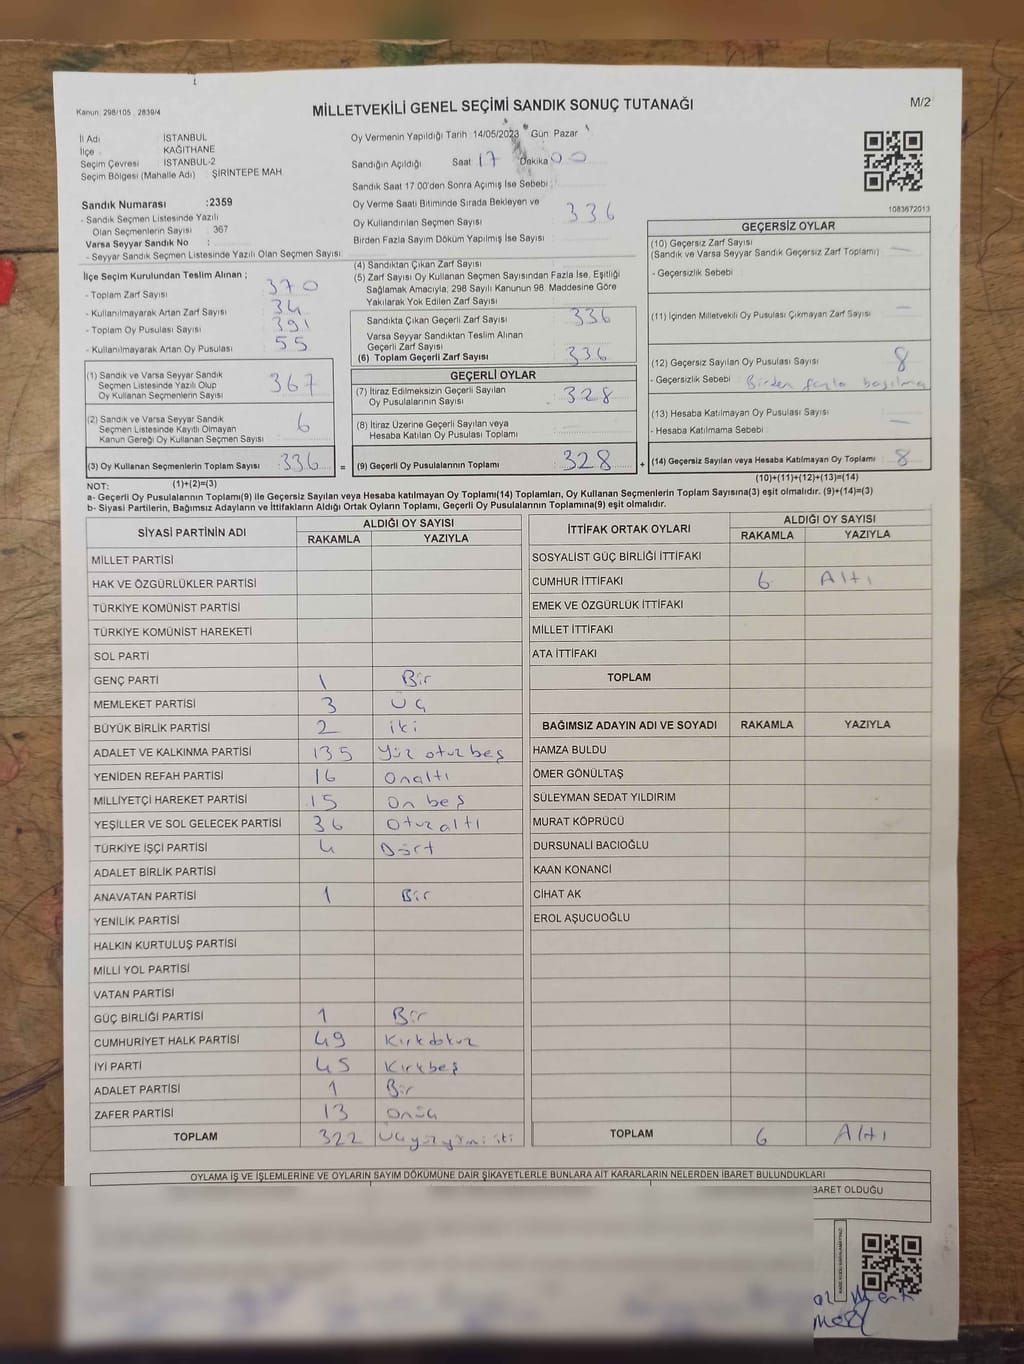 Kanun: 298/105 , 2839/4
MİLLETVEKİLİ GENEL SEÇİMİ SANDIK SONUÇ TUTANAĞI
M/2
İl Adı : İSTANBUL
İlçe : KAĞITHANE
Seçim Çevresi : İSTANBUL-2
Seçim Bölgesi (Mahalle Adı) : ŞİRİNTEPE MAH
Sandık Numarası :2359
- Sandık Seçmen Listesinde Yazılı
Olan Seçmenlerin Sayısı : 367
Varsa Seyyar Sandık No :
- Seyyar Sandık Seçmen Listesinde Yazılı Olan Seçmen Sayısı:
İlçe Seçim Kurulundan Teslim Alınan ;
- Toplam Zarf Sayısı : 370
- Kullanılmayarak Artan Zarf Sayısı : 34
- Toplam Oy Pusulası Sayısı : 391
- Kullanılmayarak Artan Oy Pusulası : 55
(1) Sandık ve Varsa Seyyar Sandık
Seçmen Listesinde Yazılı Olup
Oy Kullanan Seçmenlerin Sayısı : 367
(2) Sandık ve Varsa Seyyar Sandık
Seçmen Listesinde Kayıtlı Olmayan
Kanun Gereği Oy Kullanan Seçmen Sayısı : 6
(3) Oy Kullanan Seçmenlerin Toplam Sayısı : 336
Oy Vermenin Yapıldığı Tarih : 14/05/2023 Gün : Pazar
Sandığın Açıldığı Saat : 17 Dakika : 00
Sandık Saat 17:00'den Sonra Açılmış İse Sebebi :
Oy Verme Saati Bitiminde Sırada Bekleyen ve
Oy Kullandırılan Seçmen Sayısı : 336
Birden Fazla Sayım Döküm Yapılmış İse Sayısı :
(4) Sandıktan Çıkan Zarf Sayısı :
(5) Zarf Sayısı Oy Kullanan Seçmen Sayısından Fazla İse, Eşitliği
Sağlamak Amacıyla; 298 Sayılı Kanunun 98. Maddesine Göre
Yakılarak Yok Edilen Zarf Sayısı :
Sandıkta Çıkan Geçerli Zarf Sayısı : 336
Varsa Seyyar Sandıktan Teslim Alınan
Geçerli Zarf Sayısı :
(6) Toplam Geçerli Zarf Sayısı : 336
GEÇERLİ OYLAR
(7) İtiraz Edilmeksizin Geçerli Sayılan
Oy Pusulalarının Sayısı : 328
(8) İtiraz Üzerine Geçerli Sayılan veya
Hesaba Katılan Oy Pusulası Toplamı :
= (9) Geçerli Oy Pusulalarının Toplamı : 328
1083672013
GEÇERSİZ OYLAR
(10) Geçersiz Zarf Sayısı : —
(Sandık ve Varsa Seyyar Sandık Geçersiz Zarf Toplamı)
- Geçersizlik Sebebi :
(11) İçinden Milletvekili Oy Pusulası Çıkmayan Zarf Sayısı : —
(12) Geçersiz Sayılan Oy Pusulası Sayısı : 8
- Geçersizlik Sebebi : Birden fazla basılma
(13) Hesaba Katılmayan Oy Pusulası Sayısı : —
- Hesaba Katılmama Sebebi : —
+ (14) Geçersiz Sayılan veya Hesaba Katılmayan Oy Toplamı : 8
NOT: (1)+(2)=(3)
(10)+(11)+(12)+(13)=(14)
a- Geçerli Oy Pusulalarının Toplamı(9) ile Geçersiz Sayılan veya Hesaba katılmayan Oy Toplamı(14) Toplamları, Oy Kullanan Seçmenlerin Toplam Sayısına(3) eşit olmalıdır. (9)+(14)=(3)
b- Siyasi Partilerin, Bağımsız Adayların ve İttifakların Aldığı Ortak Oyların Toplamı, Geçerli Oy Pusulalarının Toplamına(9) eşit olmalıdır.
SİYASİ PARTİNİN ADI ALDIĞI OY SAYISI
RAKAMLA YAZIYLA
MİLLET PARTİSİ
HAK VE ÖZGÜRLÜKLER PARTİSİ
TÜRKİYE KOMÜNİST PARTİSİ
TÜRKİYE KOMÜNİST HAREKETİ
SOL PARTİ
GENÇ PARTİ 1 Bir
MEMLEKET PARTİSİ 3 Üç
BÜYÜK BİRLİK PARTİSİ 2 iki
ADALET VE KALKINMA PARTİSİ 135 Yüz otuz beş
YENİDEN REFAH PARTİSİ 16 Onaltı
MİLLİYETÇİ HAREKET PARTİSİ 15 On beş
YEŞİLLER VE SOL GELECEK PARTİSİ 36 Otuz altı
TÜRKİYE İŞÇİ PARTİSİ 4 Dört
ADALET BİRLİK PARTİSİ
ANAVATAN PARTİSİ 1 Bir
YENİLİK PARTİSİ
HALKIN KURTULUŞ PARTİSİ
MİLLİ YOL PARTİSİ
VATAN PARTİSİ
GÜÇ BİRLİĞİ PARTİSİ 1 Bir
CUMHURİYET HALK PARTİSİ 49 Kırkdokuz
İYİ PARTİ 45 Kırkbeş
ADALET PARTİSİ 1 Bir
ZAFER PARTİSİ 13 Onüç
TOPLAM 322 Üçyüzyirmi iki
İTTİFAK ORTAK OYLARI ALDIĞI OY SAYISI
RAKAMLA YAZIYLA
SOSYALİST GÜÇ BİRLİĞİ İTTİFAKI
CUMHUR İTTİFAKI 6 Altı
EMEK VE ÖZGÜRLÜK İTTİFAKI
MİLLET İTTİFAKI
ATA İTTİFAKI
TOPLAM
BAĞIMSIZ ADAYIN ADI VE SOYADI RAKAMLA YAZIYLA
HAMZA BULDU
ÖMER GÖNÜLTAŞ
SÜLEYMAN SEDAT YILDIRIM
MURAT KÖPRÜCÜ
DURSUNALİ BACIOĞLU
KAAN KONANCİ
CİHAT AK
EROL AŞUCUOĞLU
TOPLAM 6 Altı
OYLAMA İŞ VE İŞLEMLERİNE VE OYLARIN SAYIM DÖKÜMÜNE DAİR ŞİKAYETLERLE BUNLARA AİT KARARLARIN NELERDEN İBARET BULUNDUKLARI
BARET OLDUĞU